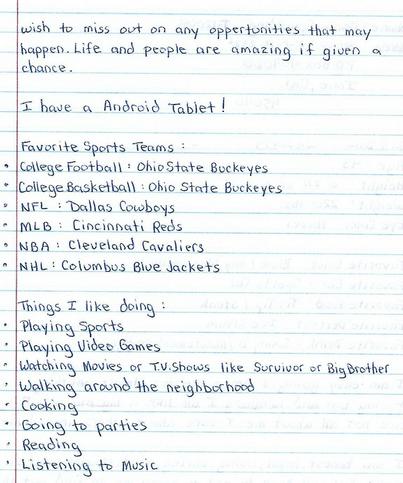 wish to miss out on any oppertunities that may
happen. Life and people are amazing if given a
chance.
I have a Android Tablet!
Favorite Sports Teams:
• College Football: Ohio State Buckeyes
• College Basketball: Ohio State Buckeyes
• NFL: Dallas Cowboys
• MLB: Cincinnati Reds
• NBA: Cleveland Cavaliers
• NHL: Columbus Blue Jackets
Things I like doing:
• Playing Sports
• Playing Video Games
• Watching Movies or T.V. Shows like Survivor or Big Brother
• Walking around the neighborhood
• Cooking
• Going to parties
• Reading
• Listening to Music